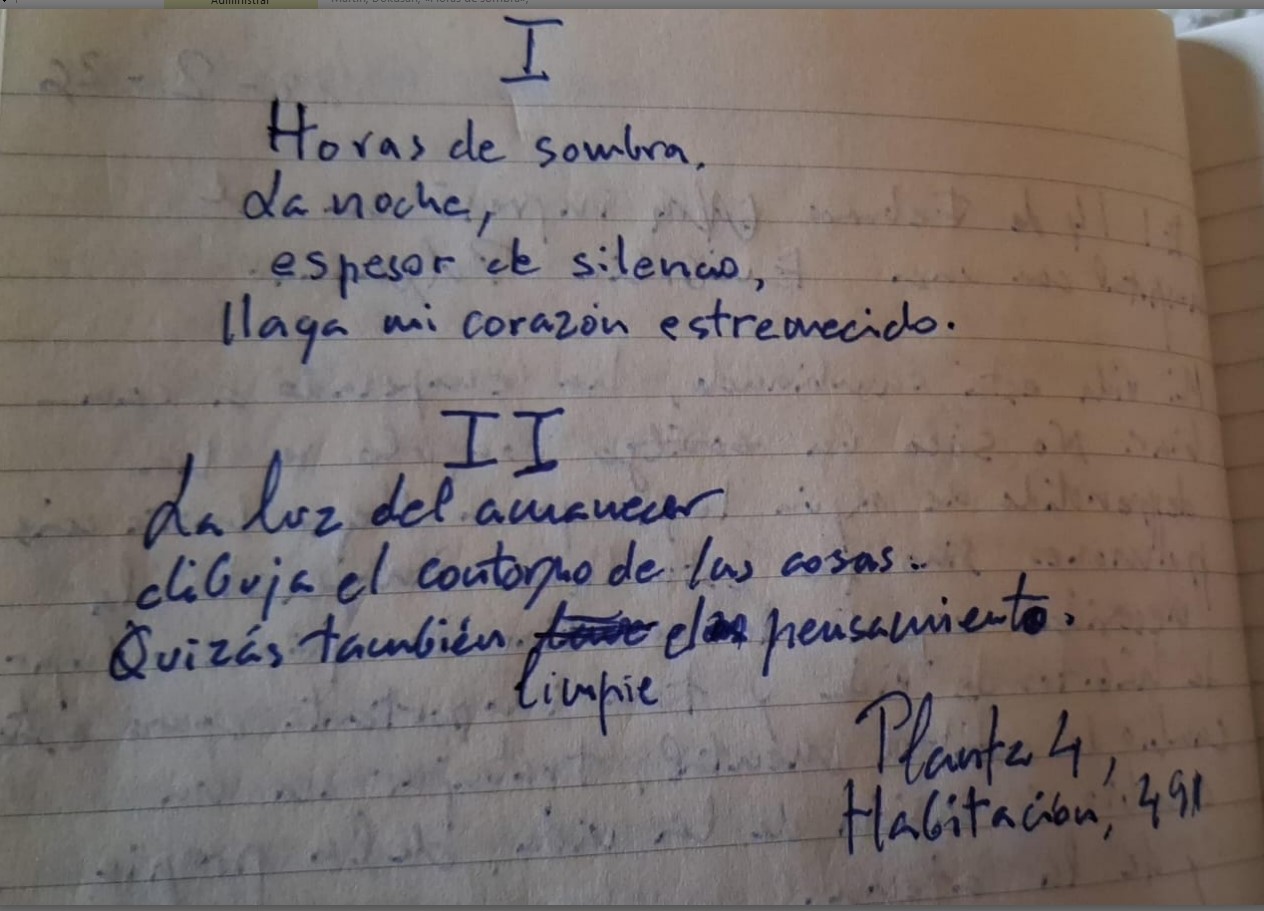 Administrar
I
Horas de sombra.
La noche,
espesor de silencio,
llaga mi corazón estremecido.
II
La luz del amanecer
dibuja el contorno de las cosas.
Quizás también el pensamiento.
limpie
Planta 4,
Habitación, 491